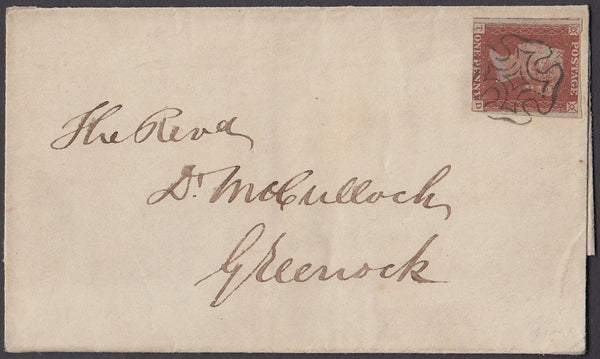 POSTAGE
ONE PENNY
T D
The Revd
Dr McCulloch
Greenock